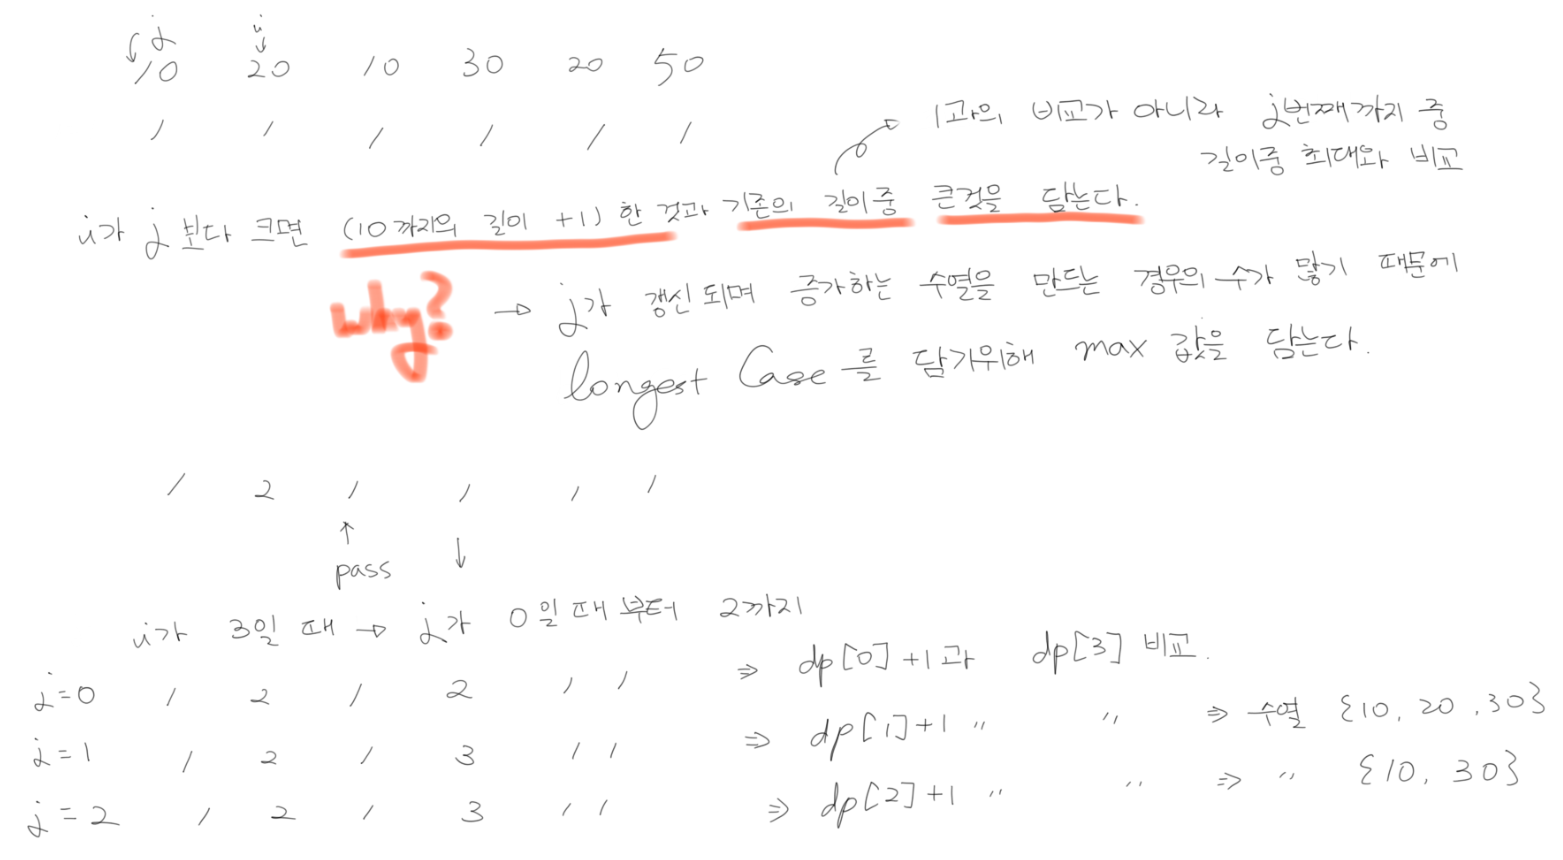 j i
10 20 10 30 20 50
1 1 1 1 1 1
1과의 비교가 아니라 j번째까지 중
길이중 최대와 비교
i가 j 보다 크면 (10까지의 길이 +1) 한 것과 기존의 길이중 큰것을 담는다.
why? → j가 갱신되며 증가하는 수열을 만드는 경우의 수가 많기 때문에
longest Case를 담기위해 max 값을 담는다.
1 2 1 1 1 1
↑ ↓
pass
i가 3일 때 → j가 0일 때 부터 2까지
j=0 1 2 1 2 1 1 ⇒ dp[0]+1과 dp[3] 비교.
j=1 1 2 1 3 1 1 ⇒ dp[1]+1 〃 〃 ⇒ 수열 {10, 20, 30}
j=2 1 2 1 3 1 1 ⇒ dp[2]+1 〃 〃 ⇒ 〃 {10, 30}